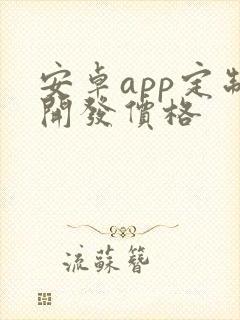 安卓app定制
開發價格
流蘇簪